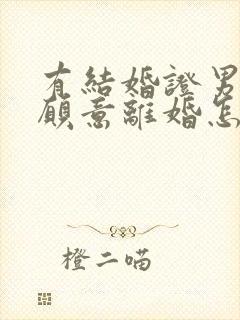 有結婚證男
願意離婚怎
橙二喵